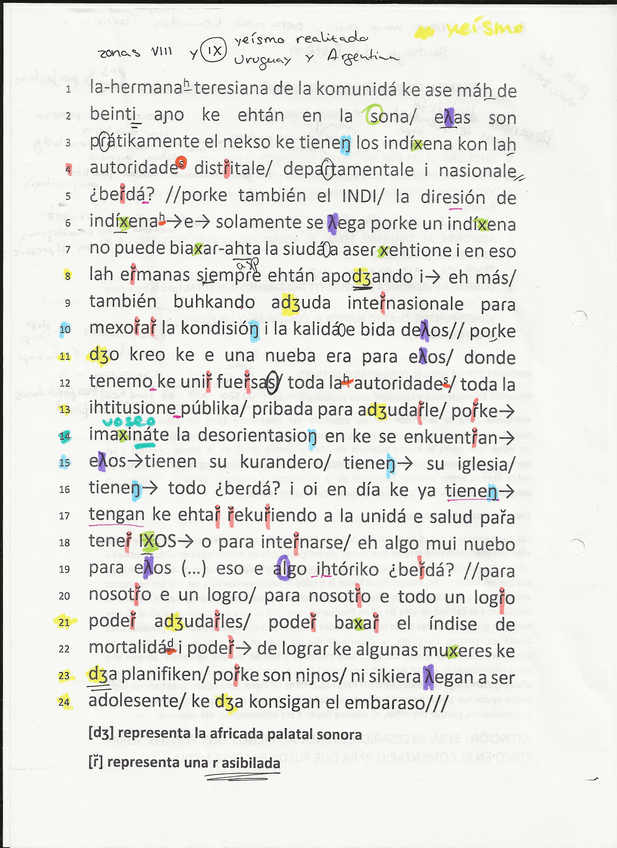 yeísmo
zonas VIII y IX yeísmo realitado
Uruguay y Argentina
1 la-hermanaʰ teresiana de la komunidá ke ase máh de
2 beinti aɲo ke ehtán en la sona/ eʎas son
3 prátikamente el nekso ke tieneŋ los indíxena kon lah
4 autoridadeˢ distr̆itale/ departamentale i nasionale
5 ¿ber̆dá? //porke también el INDI/ la diresión de
6 indíxenaʰ→e→ solamente se ʎega porke un indíxena
7 no puede biaxar-ahta la siudá a aser xehtione i en eso
asp
8 lah er̆manas siempre ehtán apodʒando i→ eh más/
9 también buhkando adʒuda inter̆nasionale para
10 mexor̆ar̆ la kondisióŋ i la kalidá e bida deʎos// porke
11 dʒo kreo ke e una nueba era para eʎos/ donde
12 tenemo ke unir̆ fuer̆sas/ toda laʰ autoridadeˢ/ toda la
13 ihtitusione públika/ pribada para adʒudar̆le/ por̆ke→
voseo
14 imaxináte la desorientasioŋ en ke se enkuentr̆an→
15 eʎos→tienen su kurandero/ tieneŋ→ su iglesia/
16 tieneŋ→ todo ¿berdá? i oi en día ke ya tieneŋ→
17 tengan ke ehtar̆ r̆ekur̆iendo a la unidá e salud par̆a
18 tener̆ IXOS→ o para inter̆narse/ eh algo mui nuebo
19 para eʎos (...) eso e algo ihtóriko ¿ber̆dá? //para
20 nosotr̆o e un logro/ para nosotr̆o e todo un logr̆o
21 poder̆ adʒudar̆les/ poder̆ baxar̆ el índise de
22 mortalidáᵈ i poder̆→ de lograr ke algunas muxeres ke
23 dʒa planifiken/ por̆ke son niɲos/ ni sikiera ʎegan a ser
24 adolesente/ ke dʒa konsigan el embaraso///
[dʒ] representa la africada palatal sonora
[r̆] representa una r asibilada